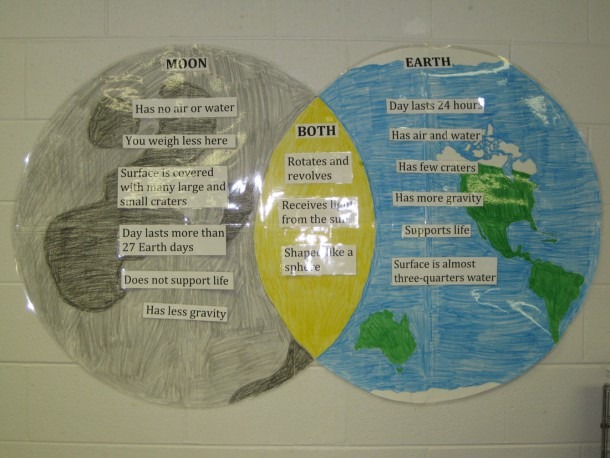 MOON
Has no air or water
You weigh less here
Surface is covered
with many large and
small craters
Day lasts more than
27 Earth days
Does not support life
Has less gravity
BOTH
Rotates and
revolves
Receives light
from the sun
Shaped like a
sphere
EARTH
Day lasts 24 hours
Has air and water
Has few craters
Has more gravity
Supports life
Surface is almost
three-quarters water